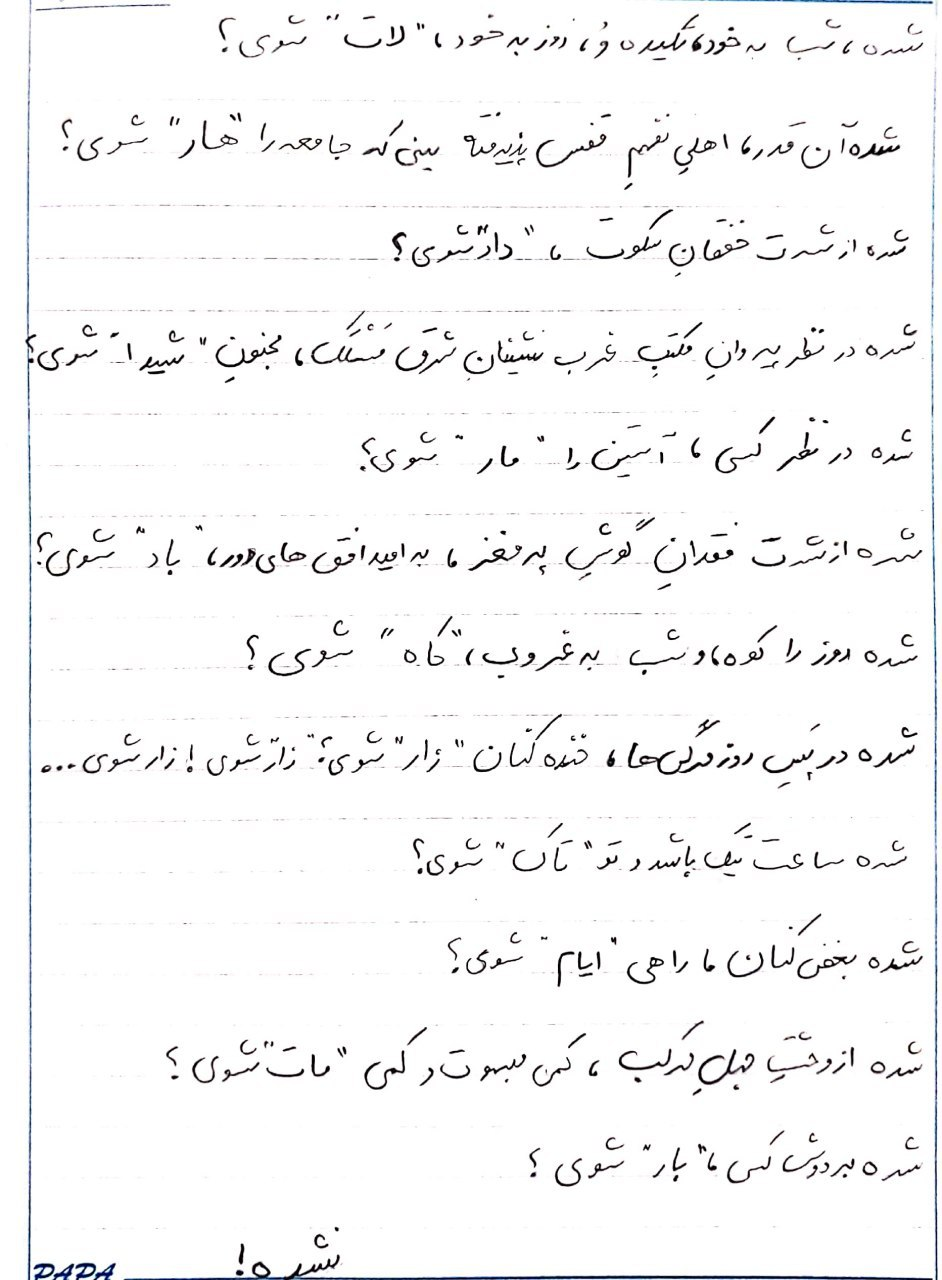 شده، شب به خود، تکیده وُ، روز به خود، "لات" شوی؟
شده آن قدر، اهلیِ نفهمِ قفس پذیرفته بینی که جامعه را "هار" شوی؟
شده از شدت خفقانِ سکوت، "داد" شوی؟
شده در نظر پیروانِ مکتبِ غرب نشینانِ شرق مَسْلَک، مجنونِ "شیدا" شوی؟
شده در نظر کسی، آستین را "مار" شوی؟
شده از شدت فقدانِ گوشِ پر مغز، به امید افق های دور، "باد" شوی؟
شده روز را کوه، و شب به غروب، "کاه" شوی؟
شده در پَسِ روزمرگی ها، خنده کنان "زار" شوی؟ "زار" شوی! زار شوی...
شده ساعت تیک باشد و تو "تاک" شوی؟
شده بغض کنان، راهی "ایام" شوی؟
شده از وحشتِ جهلِ مرکب، کمی مبهوت و کمی "مات" شوی؟
شده بر دوش کسی، "بار" شوی؟
نشده!
PAPA